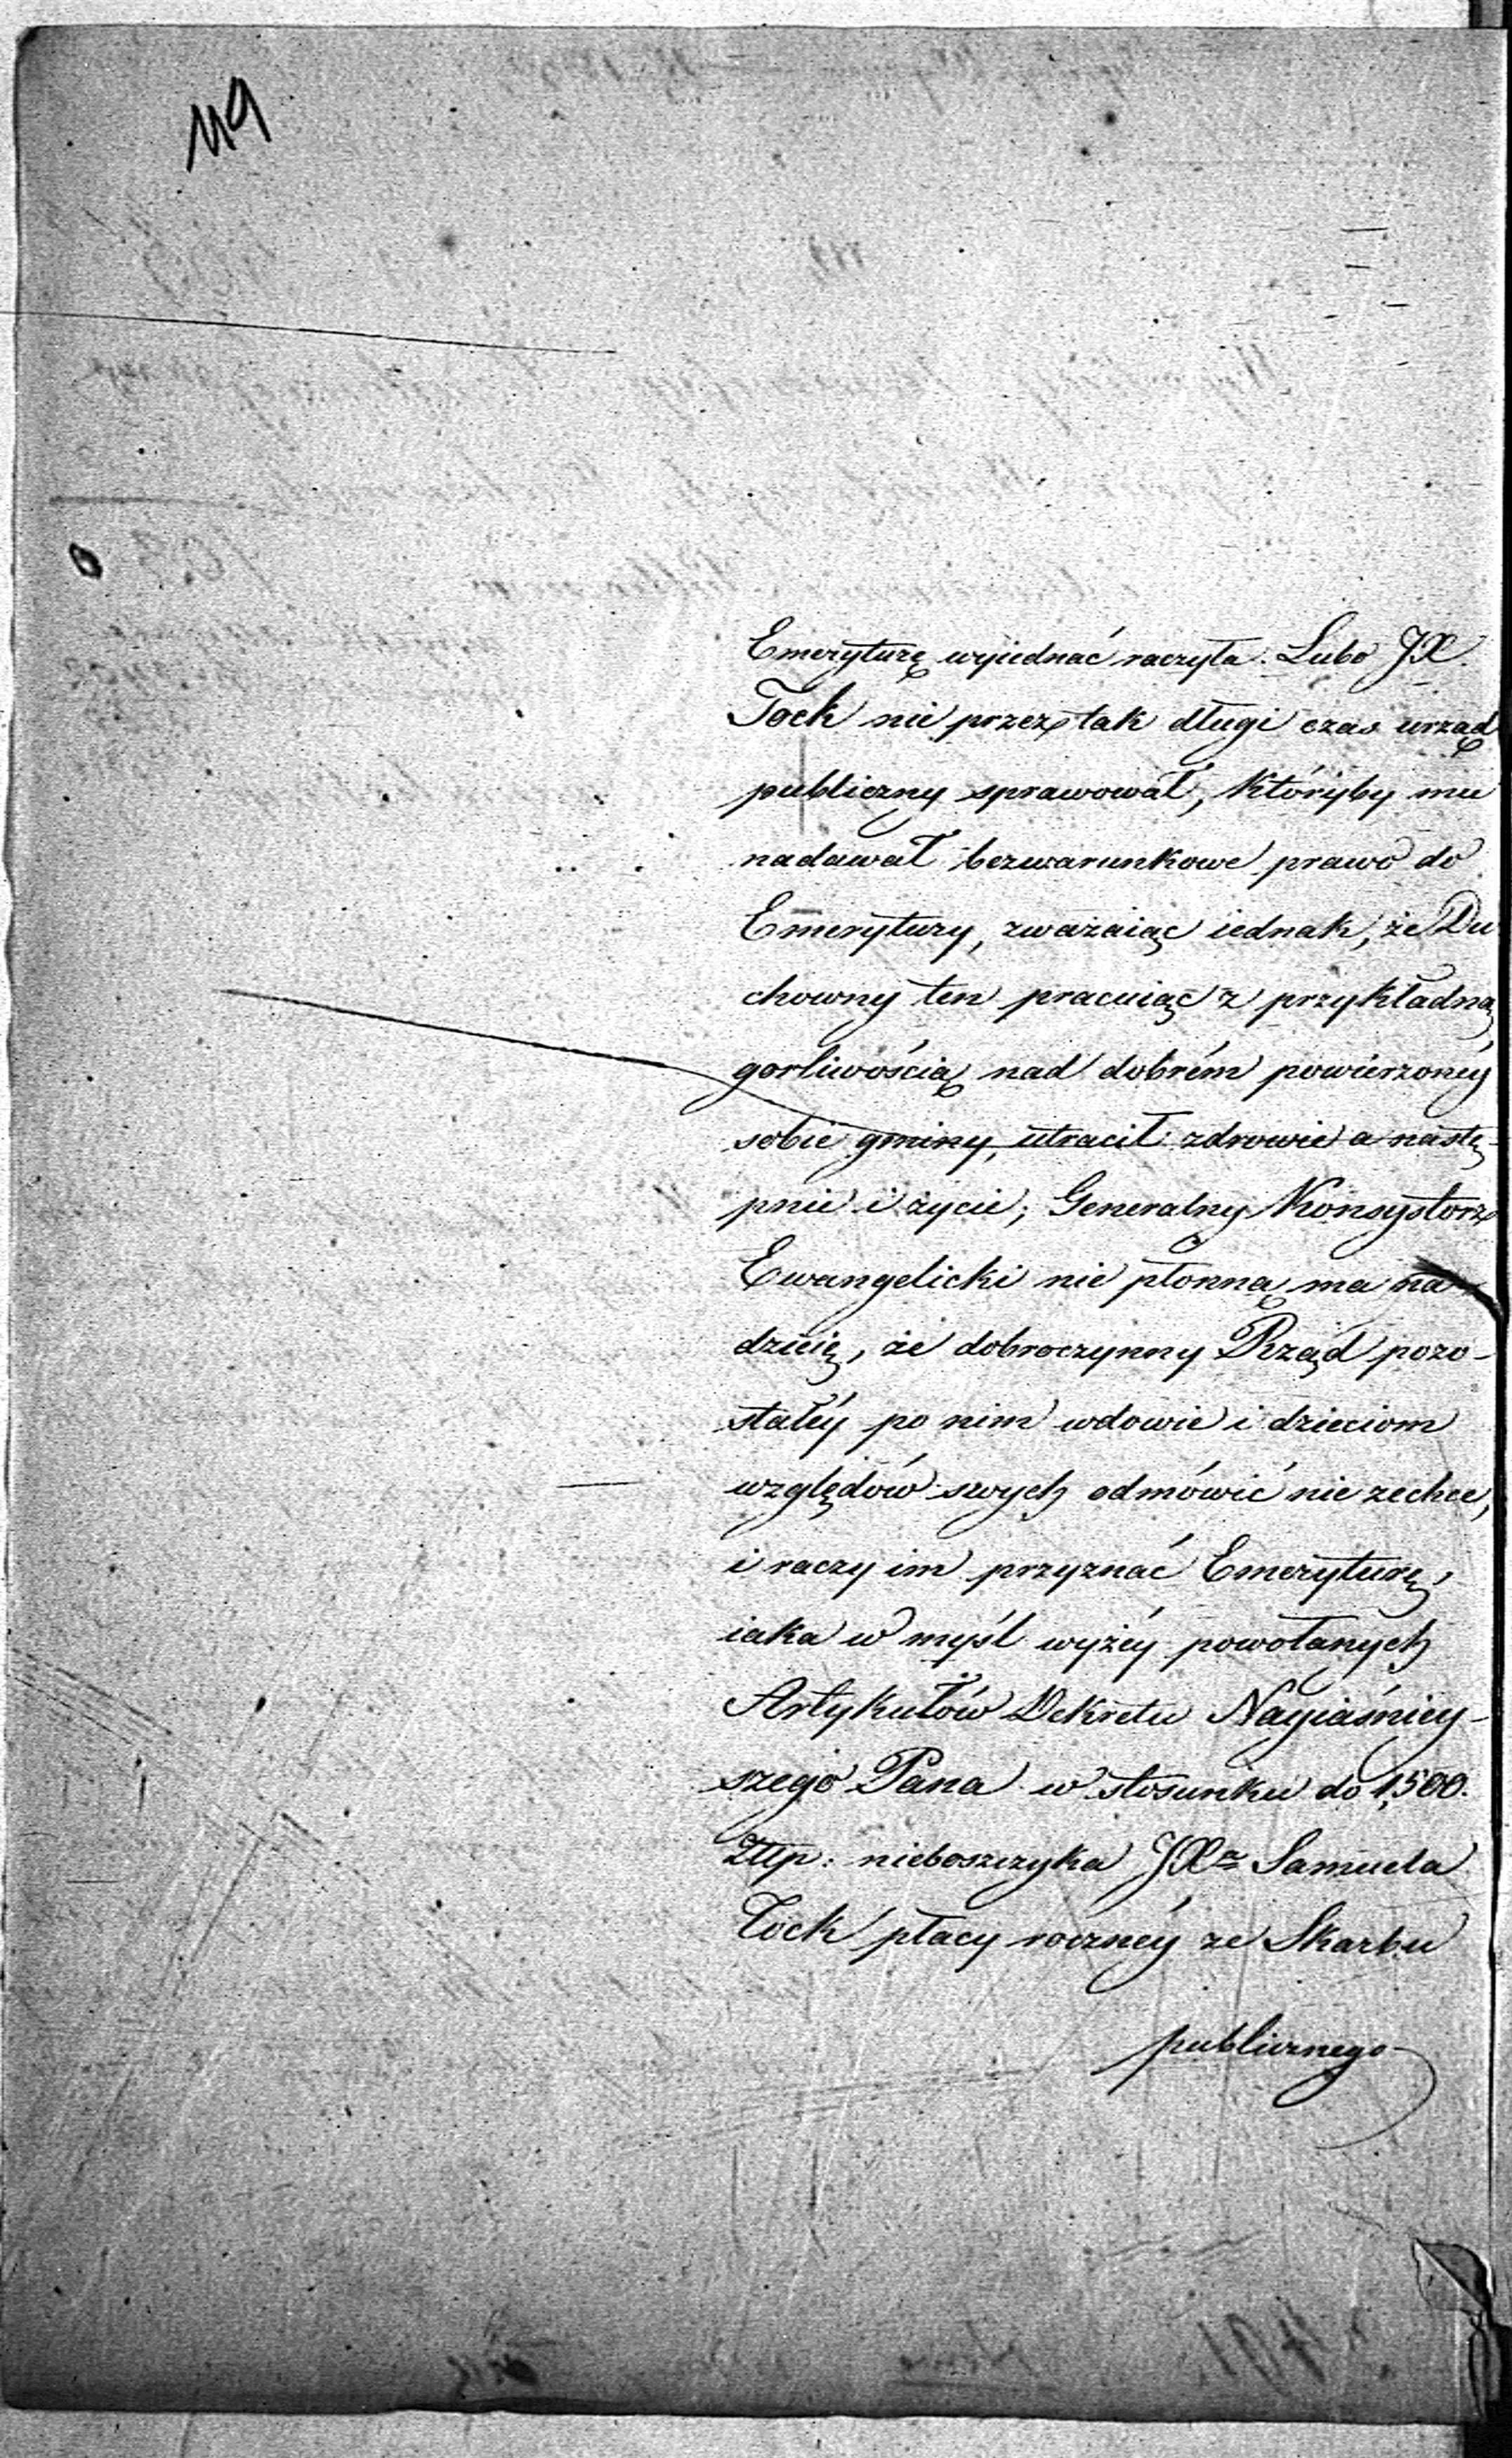 119
Emeryturę wyiednać raczyła. Lubo JX.
Tock nie przez tak długi czas urząd
publiczny sprawował, któryby mu
nadawał bezwarunkowe prawo do
Emerytury, zważaiąc iednak, że Du
chowny ten pracuiąc z przykładną
gorliwością nad dobrém powierzonéy
sobie gminy, utracił zdrowie a nastę-
pnie i życie; Generalny Konsystorz
Ewangelicki nie płonną ma na
dzieię, że dobroczynny Rząd pozo-
stałéy po nim wdowie i dzieciom
względów swych odmówić nie zechce,
i raczy im przyznać Emeryturę,
iaka w myśl wyżéy powołanych
Artykułów Dekretu Nayiaśniey-
szego Pana w stosunku do 1,500.
Złłp: nieboszczyka JXa Samuela
Tock płacy rocznéy ze Skarbu
publicznego